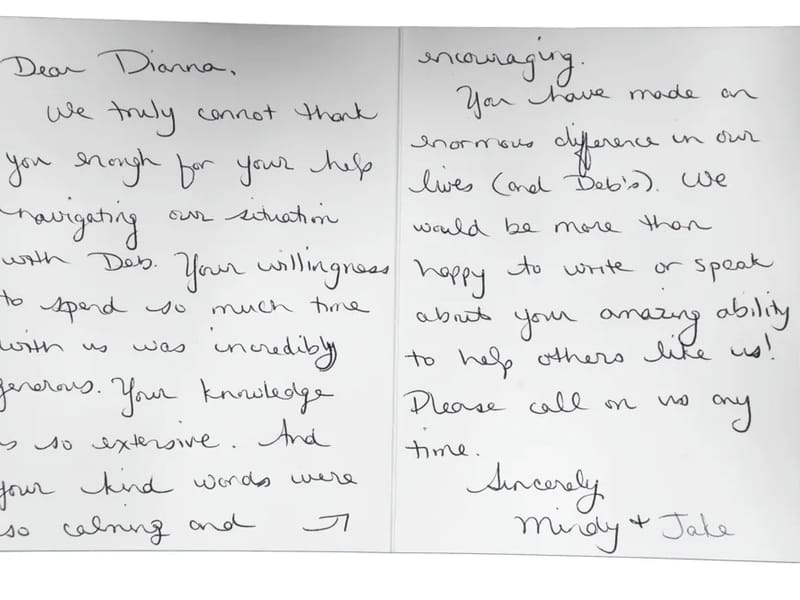 Dear Dianna,
We truly cannot thank
you enough for your help
navigating our situation
with Deb. Your willingness
to spend so much time
with us was incredibly
generous. Your knowledge
is so extensive. And
your kind words were
so calming and
encouraging.
You have made an
enormous difference in our
lives (and Deb's). We
would be more than
happy to write or speak
about your amazing ability
to help others like us!
Please call on us any
time.
Sincerely
Mindy + Jake